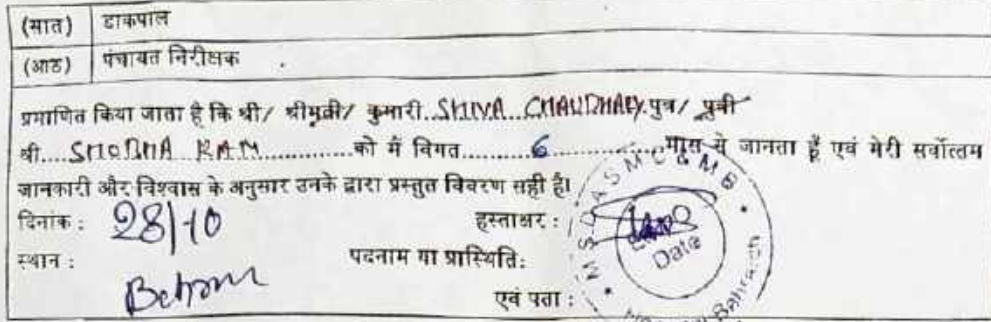 (सात) डाकपाल
(आठ) पंचायत निरीक्षक
प्रमाणित किया जाता है कि श्री/ श्रीमती/ कुमारी..SHIVA...CHAUDHARY.पुत्र/ पुत्री
श्री.....SHOBHA RAM.............को मैं विगत...........6.............मास से जानता हूँ एवं मेरी सर्वोत्तम
जानकारी और विश्वास के अनुसार उनके द्वारा प्रस्तुत विवरण सही है।
दिनांक : 28/10 हस्ताक्षर :
स्थान : पदनाम या प्रास्थिति:
एवं पता :
M S D A S M C & M B
Date
Bahraich